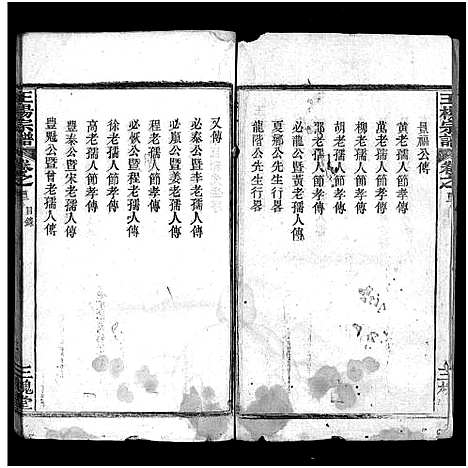 王楊宗譜
卷之
景福公傳
黃老孺人節孝傳
萬老孺人節孝傳
柳老孺人節孝傳
胡老孺人節孝傳
老孺人節孝傳
必龍公暨黃老孺人傳
夏鄰公先生行畧
龍階公先生行畧
又傳
必泰公暨老孺人傳
必嵐公暨姜老孺人傳
程老孺人節孝傳
必佩公暨程老孺人傳
徐老孺人節孝傳
高老孺人節孝傳
豊泰公暨宋老孺人傳
豊魁公暨甘老孺人傳
王楊宗譜
卷之
目錄
三槐堂